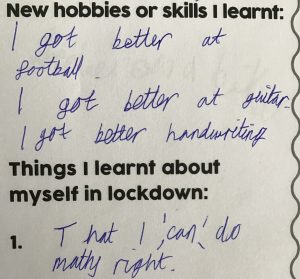 New hobbies or skills I learnt:
I got better at
football.
I got better at guitar.
I got better handwriting
Things I learnt about
myself in lockdown:
1. That I 'can' do
maths right.